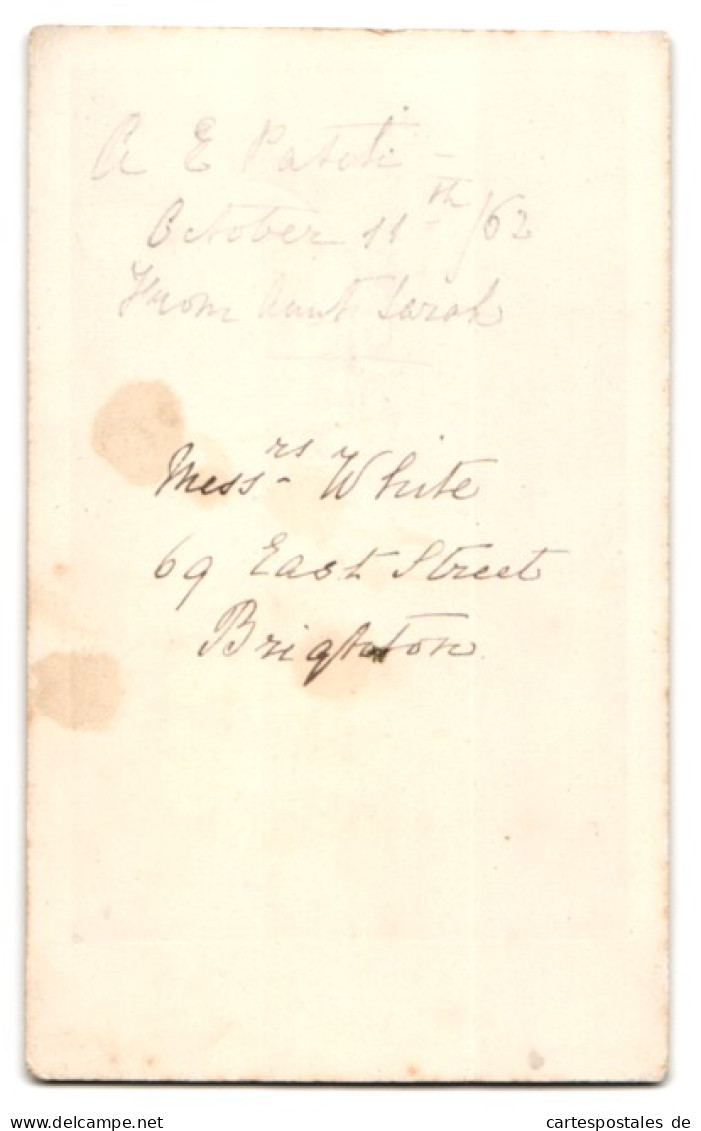 A E
October 11th/62
From Aunt Sarah
Messrs White
69 East Street
Brighton
www.cartespostales.eu
cartespostales de